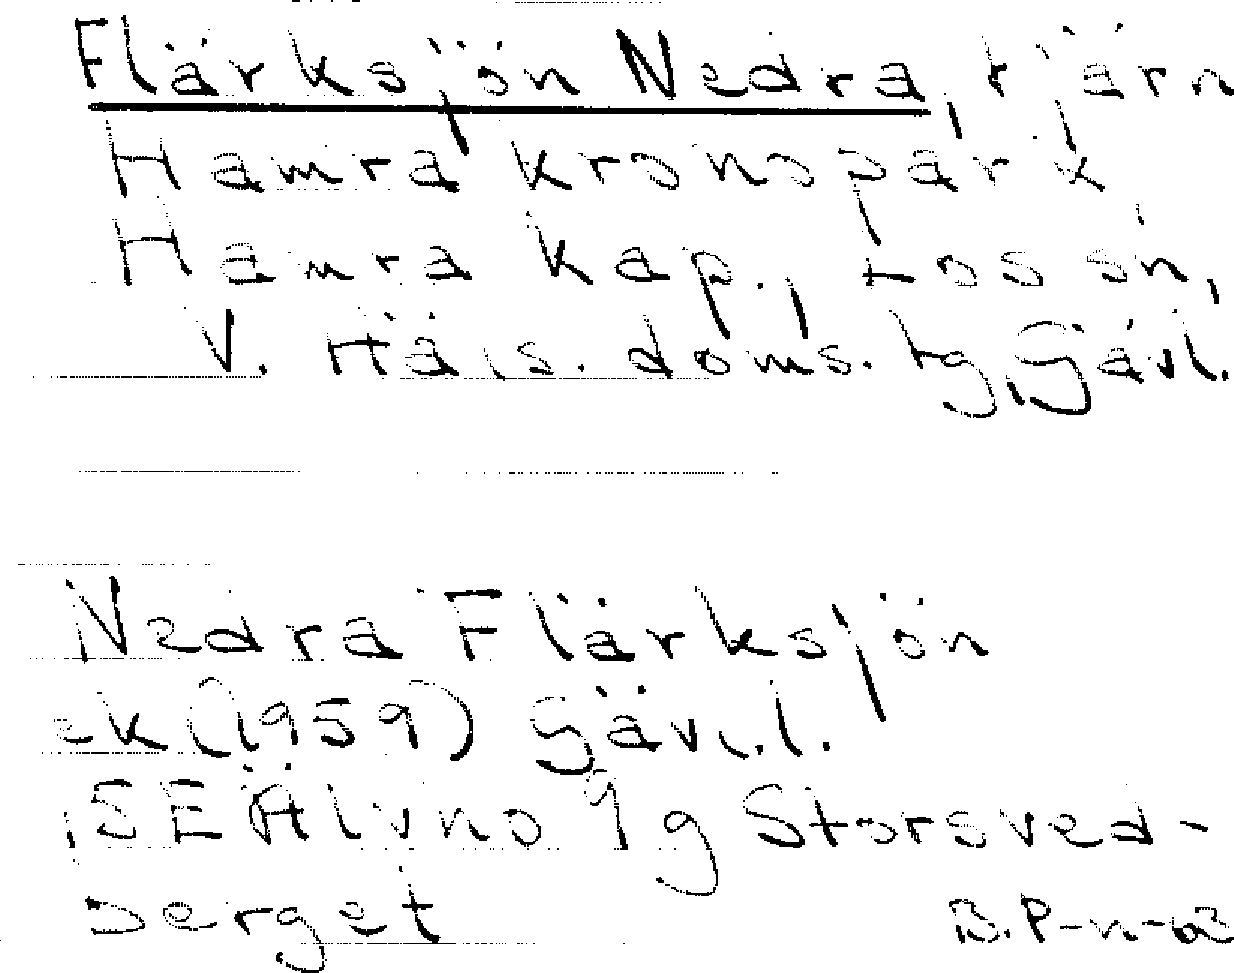 Flärksjön Nedra, tjärn
Hamra kronopark
Hamra kap., Los sn,
V. Häls. doms. tg, Gävl.
Nedra Flärksjön
ek (1959) Gävl. l.
SE Älvho 9g Storsved-
berget
B.P-n-63